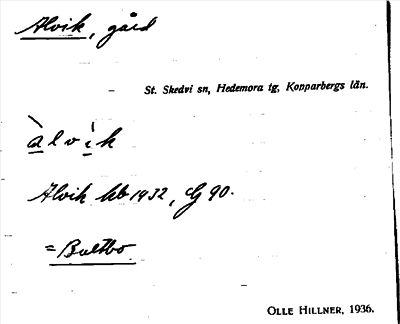 Alvik, gård
St. Skedvi sn, Hedemora tg, Kopparbergs län.
àlvìk
Alvik kb 1932, G 90.
= Bultbo
OLLE HILLNER, 1936.